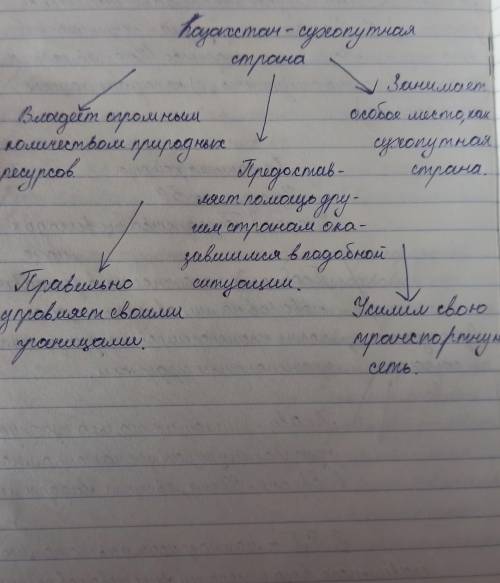 Казахстан - сухопутная
страна
Владеет огромным
количеством природных
ресурсов.
Предостав-
ляет помощь дру-
гим странам ока-
завшимся в подобной
ситуации.
Занимает
особое место, как
сухопутная
страна.
Правильно
управляет своими
границами.
Усилим свою
транспортную
сеть.